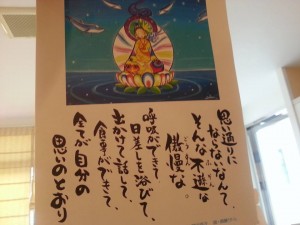 思い通りに
ならないなんて、
そんな不遜な
傲慢な
ごうまん
呼吸ができて
日差しを浴びて、
出かけて話して、
食事ができて、
全てが自分の
思いのとおり